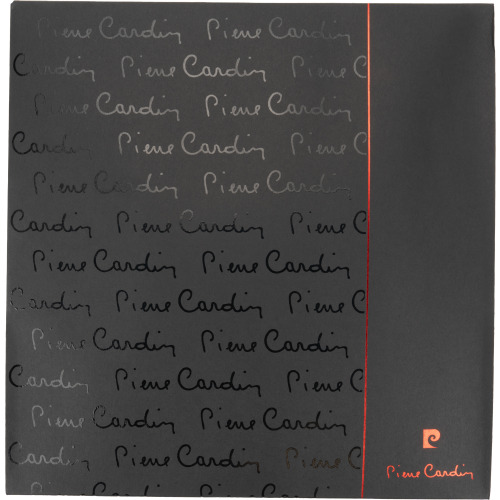 Pierre Cardin Pierre Cardin
Cardin Pierre Cardin Pierre C
Pierre Cardin Pierre Cardin
Cardin Pierre Cardin Pierre C
Pierre Cardin Pierre Cardin
Cardin Pierre Cardin Pierre C
Pierre Cardin Pierre Cardin
Cardin Pierre Cardin Pierre C
Pierre Cardin Pierre Cardin
Cardin Pierre Cardin Pierre C
Pierre Cardin Pierre Cardin
Cardin Pierre Cardin Pierre C
Pierre Cardin